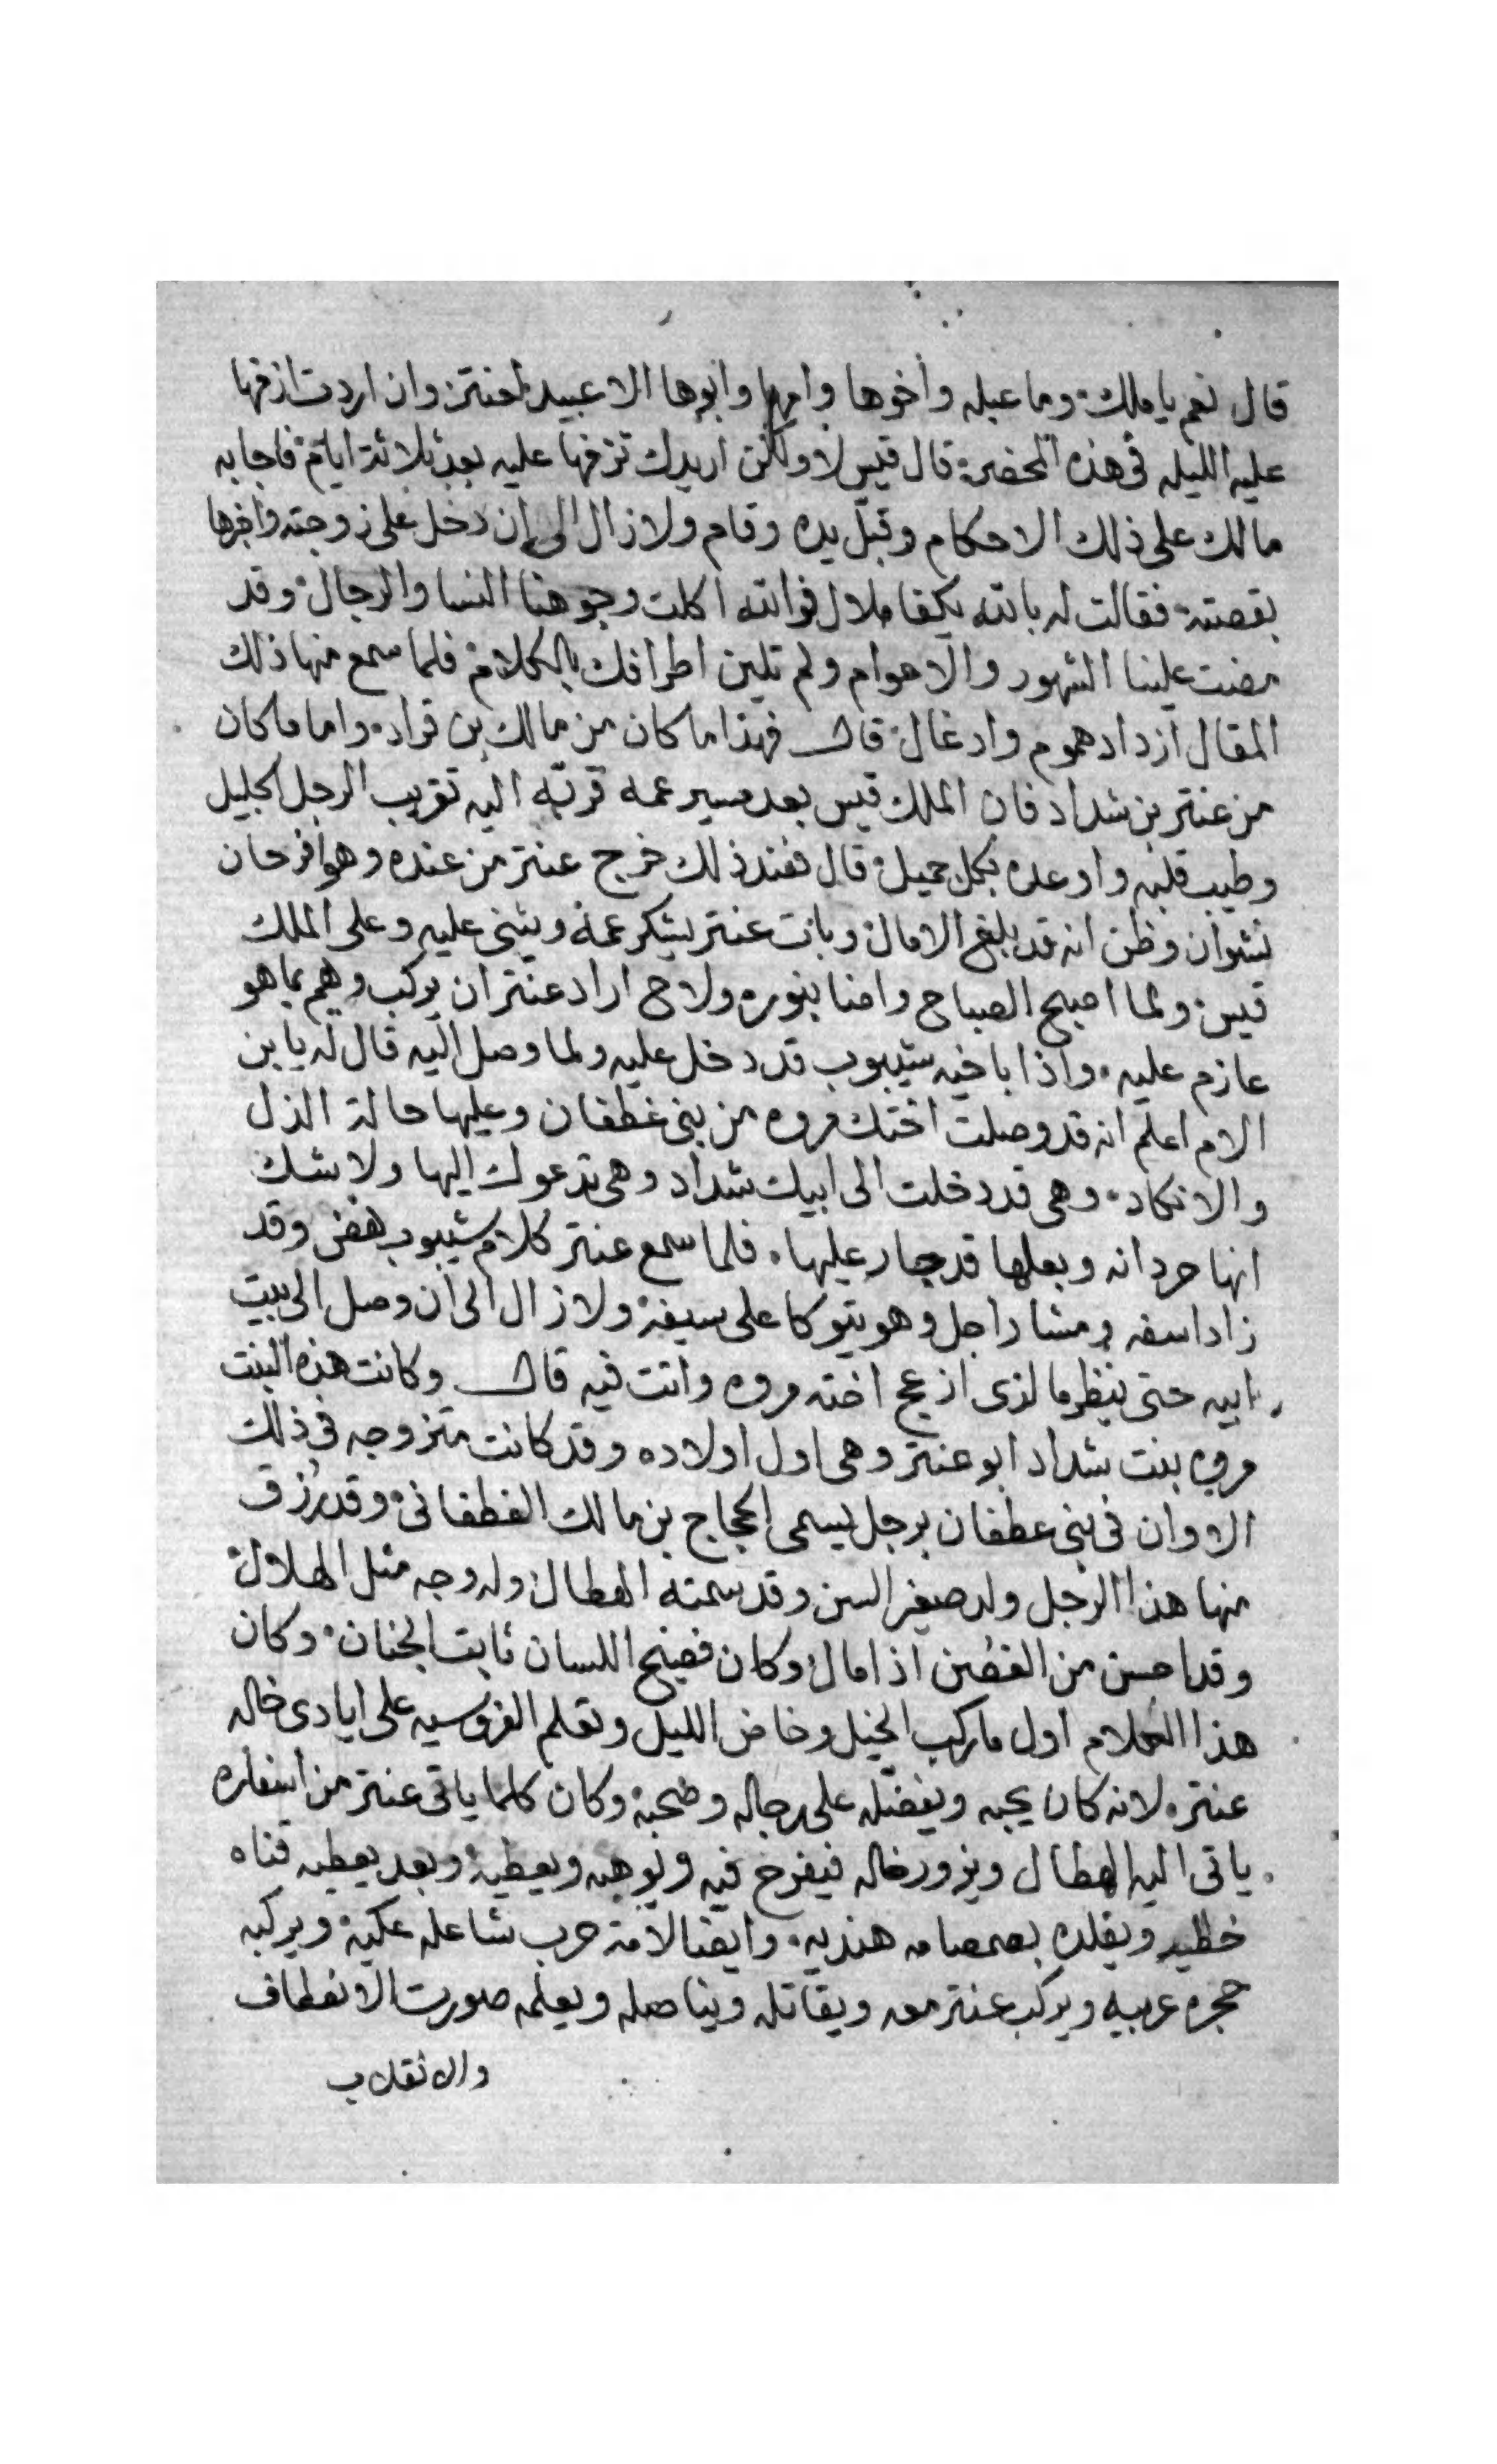 قال نعم يا ملك وما عبله وأخوها وامها وابوها الا عبيد لعنتر وان اردت ازفها
عليه الليله في هذه المحضر قال قيس لا ولكن اريدك تزفها عليه بعد ثلاثة ايام فاجابه
مالك على ذلك الاحكام وقبل يده وقام ولا زال الى ان دخل على زوجته واخبرها
بقصته فقالت له بالله يكفا ملال فوالله اكلت وجوهنا النسا والرجال وقد
مضت علينا الشهور والاعوام ولم تلين اطرافك بالكلام فلما سمع منها ذلك
المقال ازداد هموم وادغال قال فهذا ما كان من مالك بن قراد واما ما كان
من عنتر بن شداد فان الملك قيس بعد مسير عمه قربه اليه تقريب الرجل الجليل
وطيب قلبه واوعده بكل جميل قال فعند ذلك خرج عنتر من عنده وهو افرحان
نشوان وظن انه قد بلغ الامال وبات عنتر يشكر عمه ويثنى عليه وعلى الملك
قيس ولما اصبح الصباح واضا بنوره ولاح اراد عنتر ان يركب وهم بما هو
عازم عليه واذا باخيه شيبوب قد دخل عليه ولما وصل اليه قال له يا بن
الام اعلم انه قد وصلت اختك مروه من بنى غطفان وعليها حالة الذل
والانكاد وهى قد دخلت الى ابيك شداد وهى تدعوك اليها ولا شك
انها حردانه وبعلها قد جار عليها فلما سمع عنتر كلام شيبوب نهض وقد
زاد اسفه ومشا راجل وهو يتوكا على سيفه ولا زال الى ان وصل الى بيت
ابيه حتى ينظر ما لذى ازعج اخته مروه واتت فيه قال وكانت هذه البنت
مروه بنت شداد ابو عنتر وهى اول اولاده وقد كانت متزوجه في ذلك
الاوان في بنى عطفان برجل يسمى الحجاج بن مالك الغطفانى وقد رزق
منها هذا الرجل ولد صغير السن وقد سمته الهطال وله وجه مثل الهلال
وقد احسن من الغصن اذا مال وكان فصيح اللسان ثابت الجنان وكان
هذا الغلام اول ما ركب الخيل وخاض الليل وتعلم الفروسيه على ايادى خاله
عنتره لانه كان يحبه ويفضله على رجاله وصحبه وكان كلما ياتى عنتر من اسفاره
ياتى اليه الهطال ويزور خاله فيفرح فيه ويوهبه ويعطيه وبعد يعطيه قناه
خطيه ويقلده بصمصامه هنديه وايضا لامة حرب شاعله عكيه ويركبه
حجره عربيه ويركب عنتر معه ويقاتله ويناصله ويعلمه صورت الانعطاف
والانقلاب